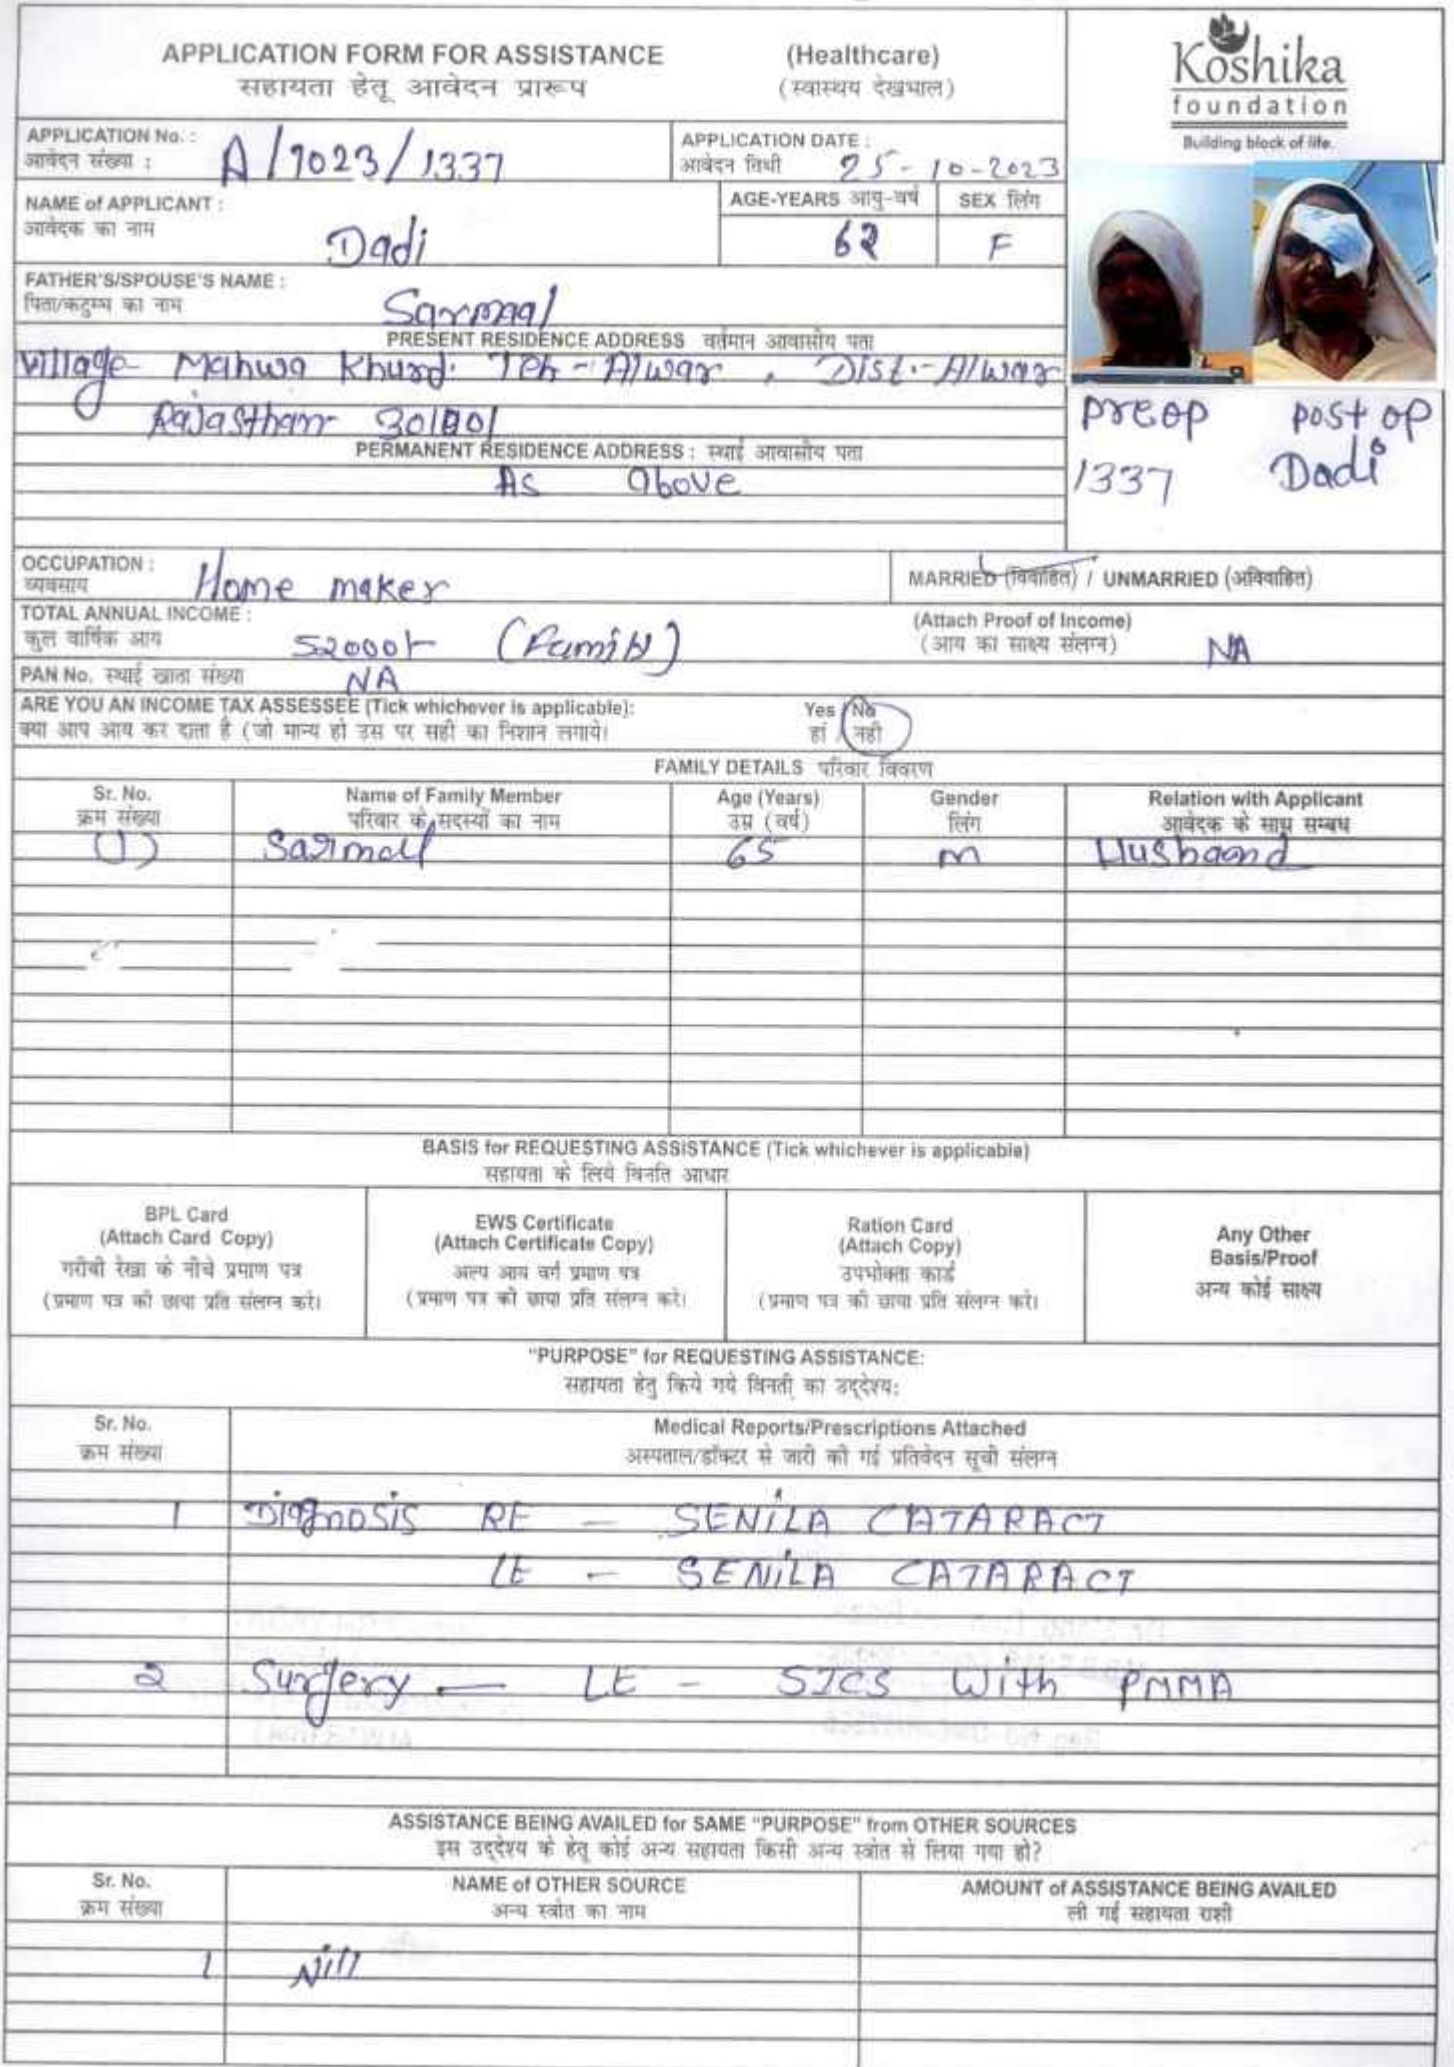 APPLICATION FORM FOR ASSISTANCE (Healthcare)
सहायता हेतू आवेदन प्रारूप (स्वास्थय देखभाल)
Koshika
foundation
Building block of life.
APPLICATION No. :
आवेदन संख्या : A/1023/1337
APPLICATION DATE :
आवेदन तिथी 25-10-2023
NAME of APPLICANT :
आवेदक का नाम Dadi
AGE-YEARS आयु-वर्ष SEX लिंग
62 F
FATHER'S/SPOUSE'S NAME :
पिता/कटुम्ब का नाम Sarmaal
PRESENT RESIDENCE ADDRESS वर्तमान आवासीय पता
Village Mahwa Khurd. Teh - Alwar, Dist.- Alwar
Rajasthan 301001
PERMANENT RESIDENCE ADDRESS : स्थाई आवासीय पता
As above
preop post op
1337 Dadi
OCCUPATION :
व्यवसाय Home maker
MARRIED (विवाहित) / UNMARRIED (अविवाहित)
TOTAL ANNUAL INCOME :
कुल वार्षिक आय 52000/- (Family)
(Attach Proof of Income)
(आय का साक्ष्य संलग्न) NA
PAN No. स्थाई खाता संख्या NA
ARE YOU AN INCOME TAX ASSESSEE (Tick whichever is applicable): Yes / No
क्या आप आय कर दाता है (जो मान्य हो उस पर सही का निशान लगाये। हां / नही
FAMILY DETAILS परिवार विवरण
Sr. No. Name of Family Member Age (Years) Gender Relation with Applicant
क्रम संख्या परिवार के सदस्यों का नाम उम्र (वर्ष) लिंग आवेदक के साथ सम्बध
(1) Sarmal 65 m Husband
BASIS for REQUESTING ASSISTANCE (Tick whichever is applicable)
सहायता के लिये विनति आधार
BPL Card
(Attach Card Copy)
गरीबी रेखा के नीचे प्रमाण पत्र
(प्रमाण पत्र की छाया प्रति संलग्न करे।
EWS Certificate
(Attach Certificate Copy)
अल्प आय वर्ग प्रमाण पत्र
(प्रमाण पत्र की छाया प्रति संलग्न करे।
Ration Card
(Attach Copy)
उपभोक्ता कार्ड
(प्रमाण पत्र की छाया प्रति संलग्न करे।
Any Other
Basis/Proof
अन्य कोई साक्ष्य
"PURPOSE" for REQUESTING ASSISTANCE:
सहायता हेतु किये गये विनती का उद्देश्य:
Sr. No. Medical Reports/Prescriptions Attached
क्रम संख्या अस्पताल/डॉक्टर से जारी की गई प्रतिवेदन सूची संलग्न
1 Diagnosis RE - SENILA CATARACT
LE - SENILA CATARACT
2 Surgery - LE - SICS With PMMA
ASSISTANCE BEING AVAILED for SAME "PURPOSE" from OTHER SOURCES
इस उद्देश्य के हेतू कोई अन्य सहायता किसी अन्य स्त्रोत से लिया गया हो?
Sr. No. NAME of OTHER SOURCE AMOUNT of ASSISTANCE BEING AVAILED
क्रम संख्या अन्य स्त्रोत का नाम ली गई सहायता राशी
1 Nill